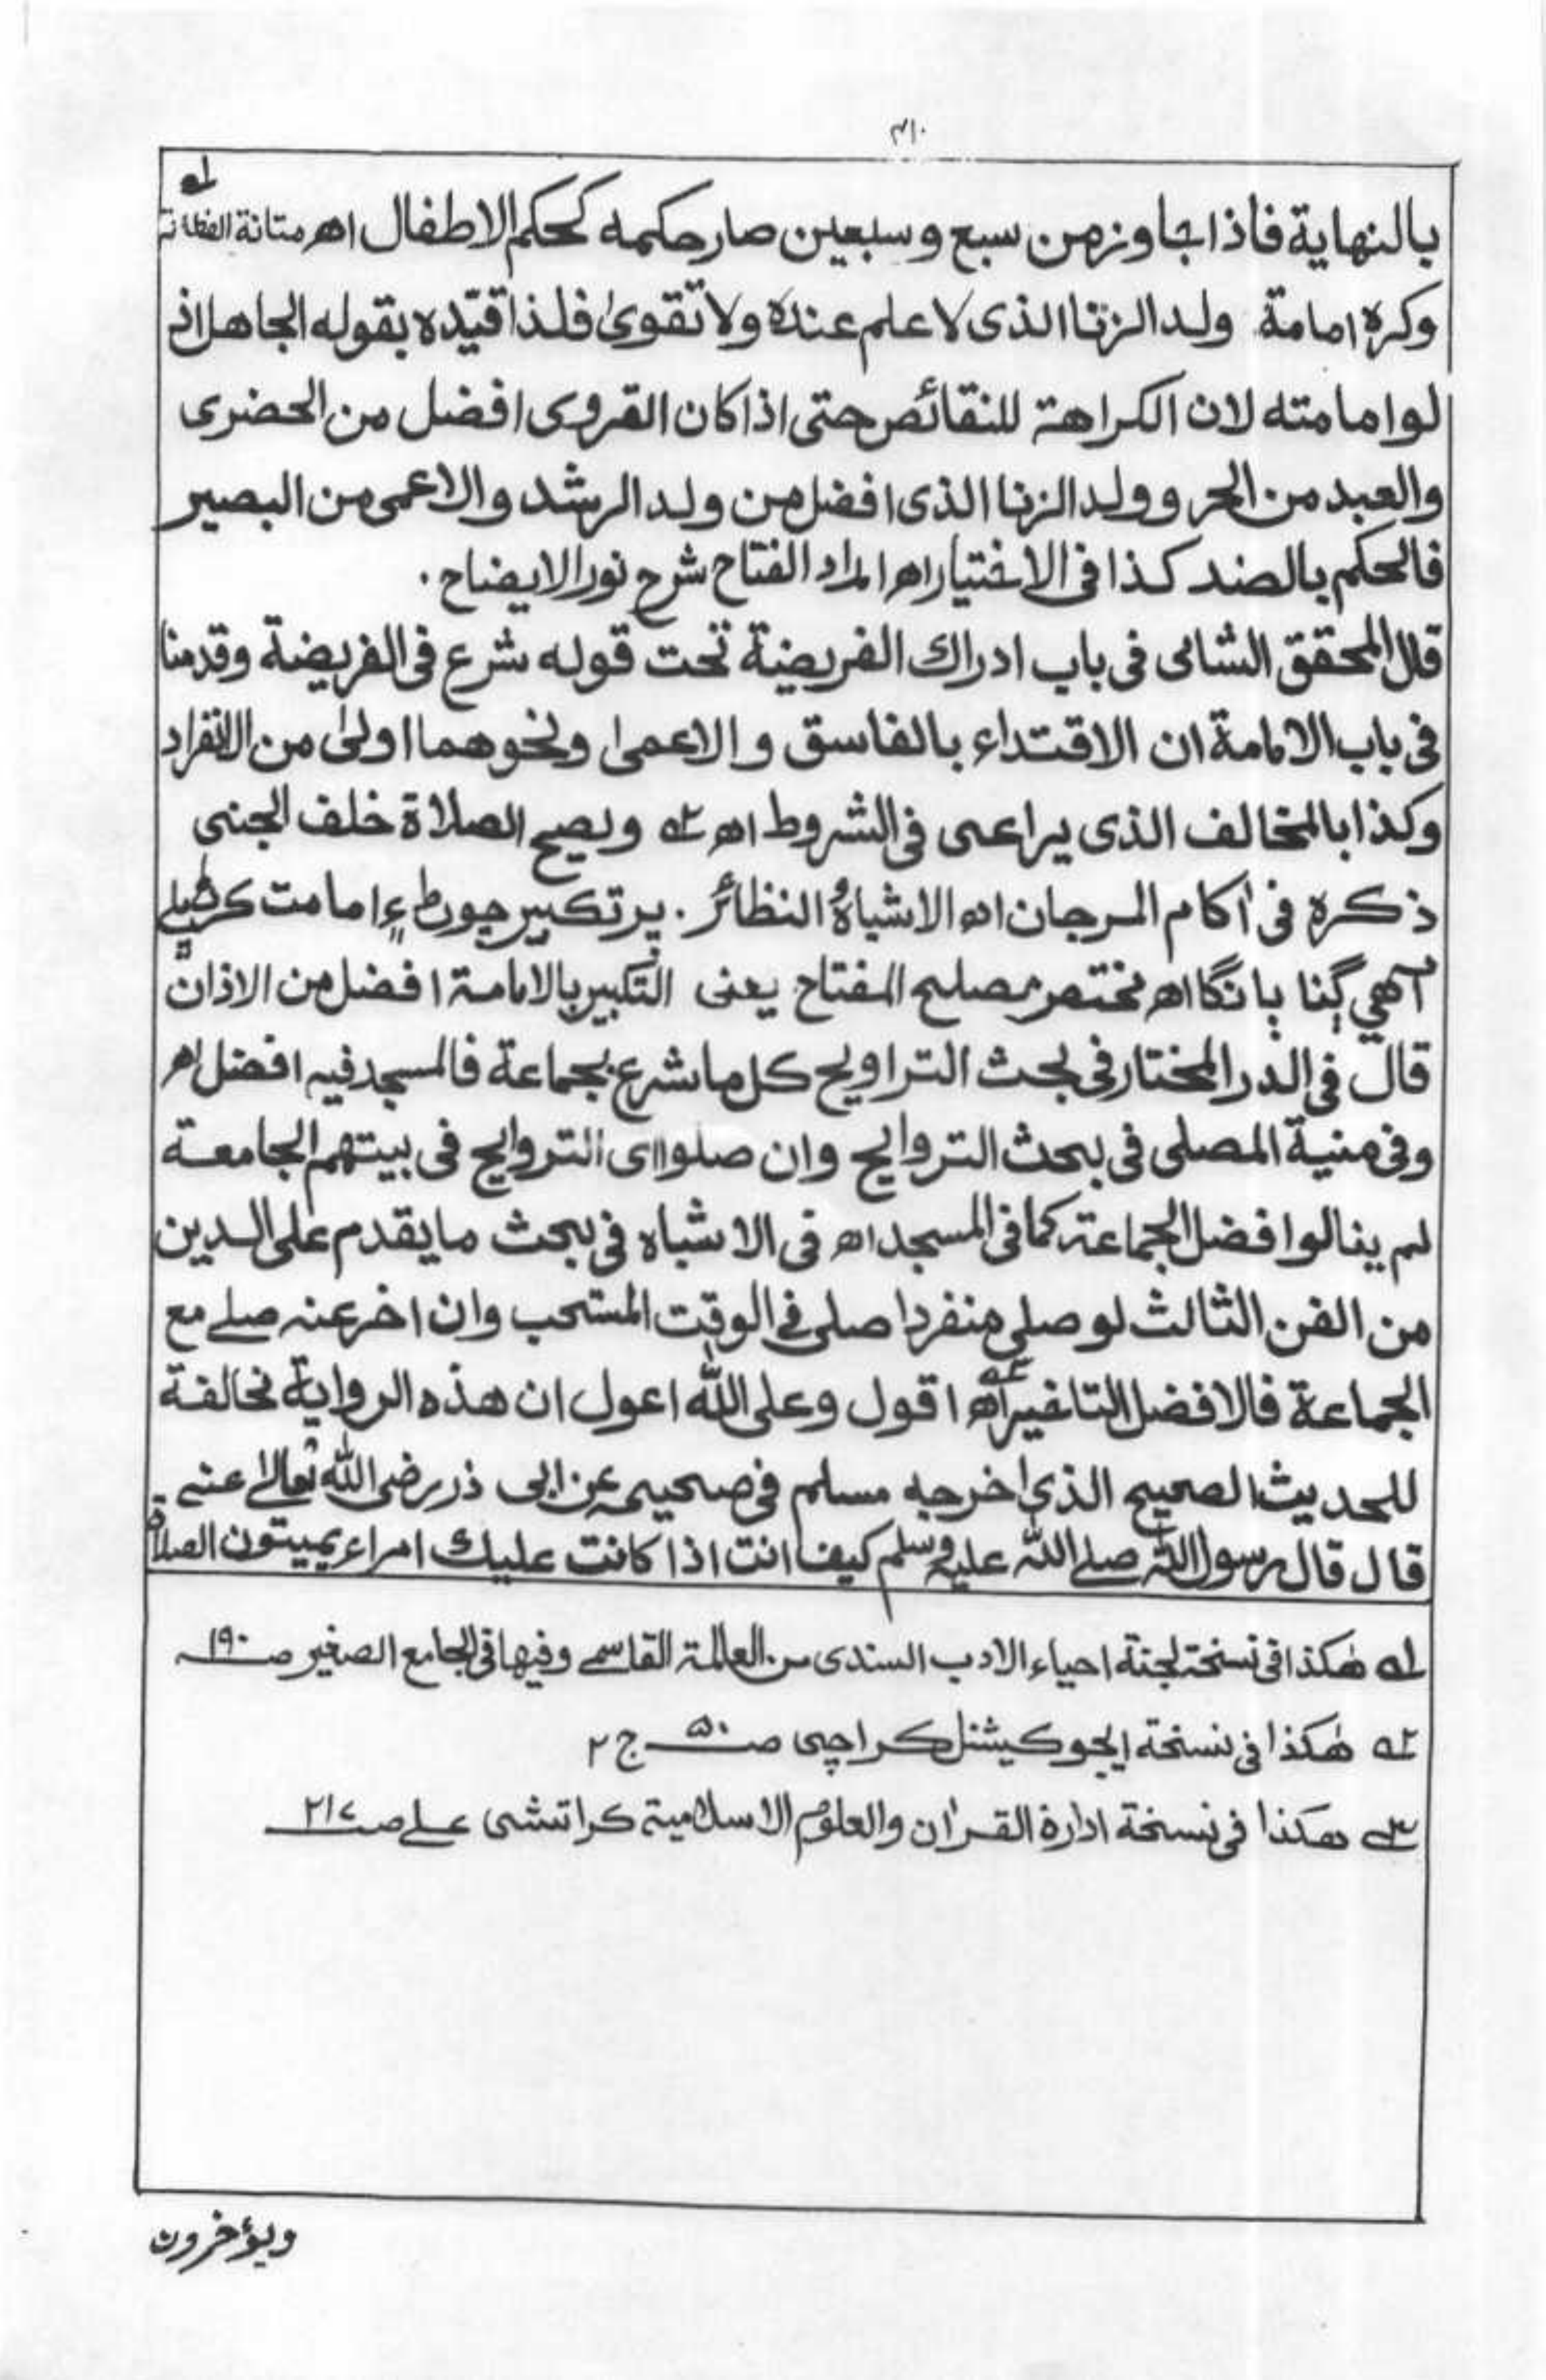 ٣١٠
بالنهاية فاذا جاوز من سبع وسبعين صار حكمه كحكم الاطفال اھ متانة
وكره امامة ولد الزنا الذى لا علم عنده ولا تقوىٰ فلذا قيّده بقوله الجاهل اذ
لوا مامته لان الكراهة للنقائص حتى اذا كان القروى افضل من الحضرى
والعبد من الحر وولد الزنا الذى افضل من ولد الرشد والاعمى من البصير
فالحكم بالضد كذا فى الاختيار اھ امداد الفتاح شرح نور الايضاح .
قال المحقق الشامى فى باب ادراك الفريضة تحت قوله شرع فى الفريضة وقدمنا
فى باب الامامة ان الاقتداء بالفاسق والاعمىٰ ونحوهما اولىٰ من الانفراد
وكذا بالمخالف الذى يراعى فى الشروط اھ ٢ ويصح الصلاة خلف الجنى
ذكره فى اٰكام المرجان اھ الاشباهُ النظائر . پر تكبير امامت
آهي بانگا اھ مختصر مصلح المفتاح يعنى التكبير بالامامة افضل من الاذان
قال فى الدر المختار فى بحث التراويح كل ما شرع بجماعة فالمسجد فيه افضل اھ
وفى منية المصلى فى بحث التروايح وان صلوا اى التروايح فى بيتهم الجامعة
لم ينالوا فضل الجماعة كما فى المسجد اھ فى الاشباه فى بحث ما يقدم على الدين
من الفن الثالث لو صلى منفردا صلى فى الوقت المستحب وان اخر عنه صلے مع
الجماعة فالافضل التاخير اھ ٣ اقول وعلى الله اعول ان هذه الرواية مخالفة
للحديث الصحيح الذى اخرجه مسلم فى صحيحه عن ابى ذر رضى الله تعالىٰ عنه
قال قال رسول الله صلے الله عليه وسلم كيف انت اذا كانت عليك امراء يميتون الصلاة
١ هٰكذا فى نسخة لجنة احياء الادب السندى من العلامة القاسمے وفيها فى الجامع الصغير صـ ١٩٠
٢ هٰكذا فى نسخة ايجو كيشنل كراچى صـ ٥٠ ج ٢
٣ هكذا فى نسخة ادارة القراٰن والعلوم الاسلامية كراتشى علے صـ ٢١٧